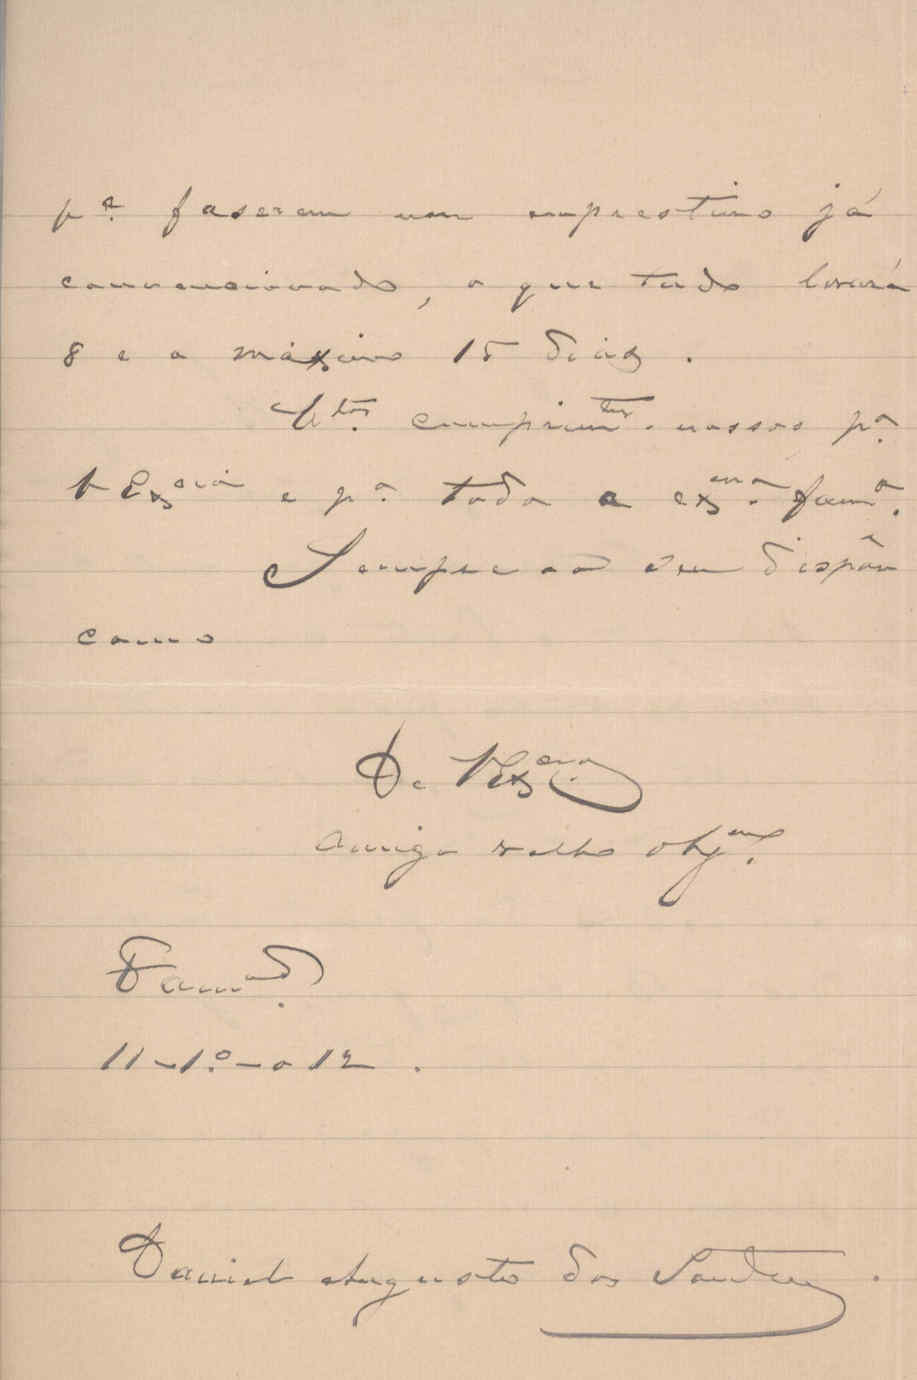 pª faserem um emprestimo já
convencionado, o que tudo levará
8 e o máximo 15 dias.
Mtos. cumprimtos. nossos pª
V Excia e pª toda a exma. famª.
Sempre ao seu dispôr
como
De VExcia.
Amigo velho obgmo.
11-1º-912.
Daniel Augusto dos Santos.